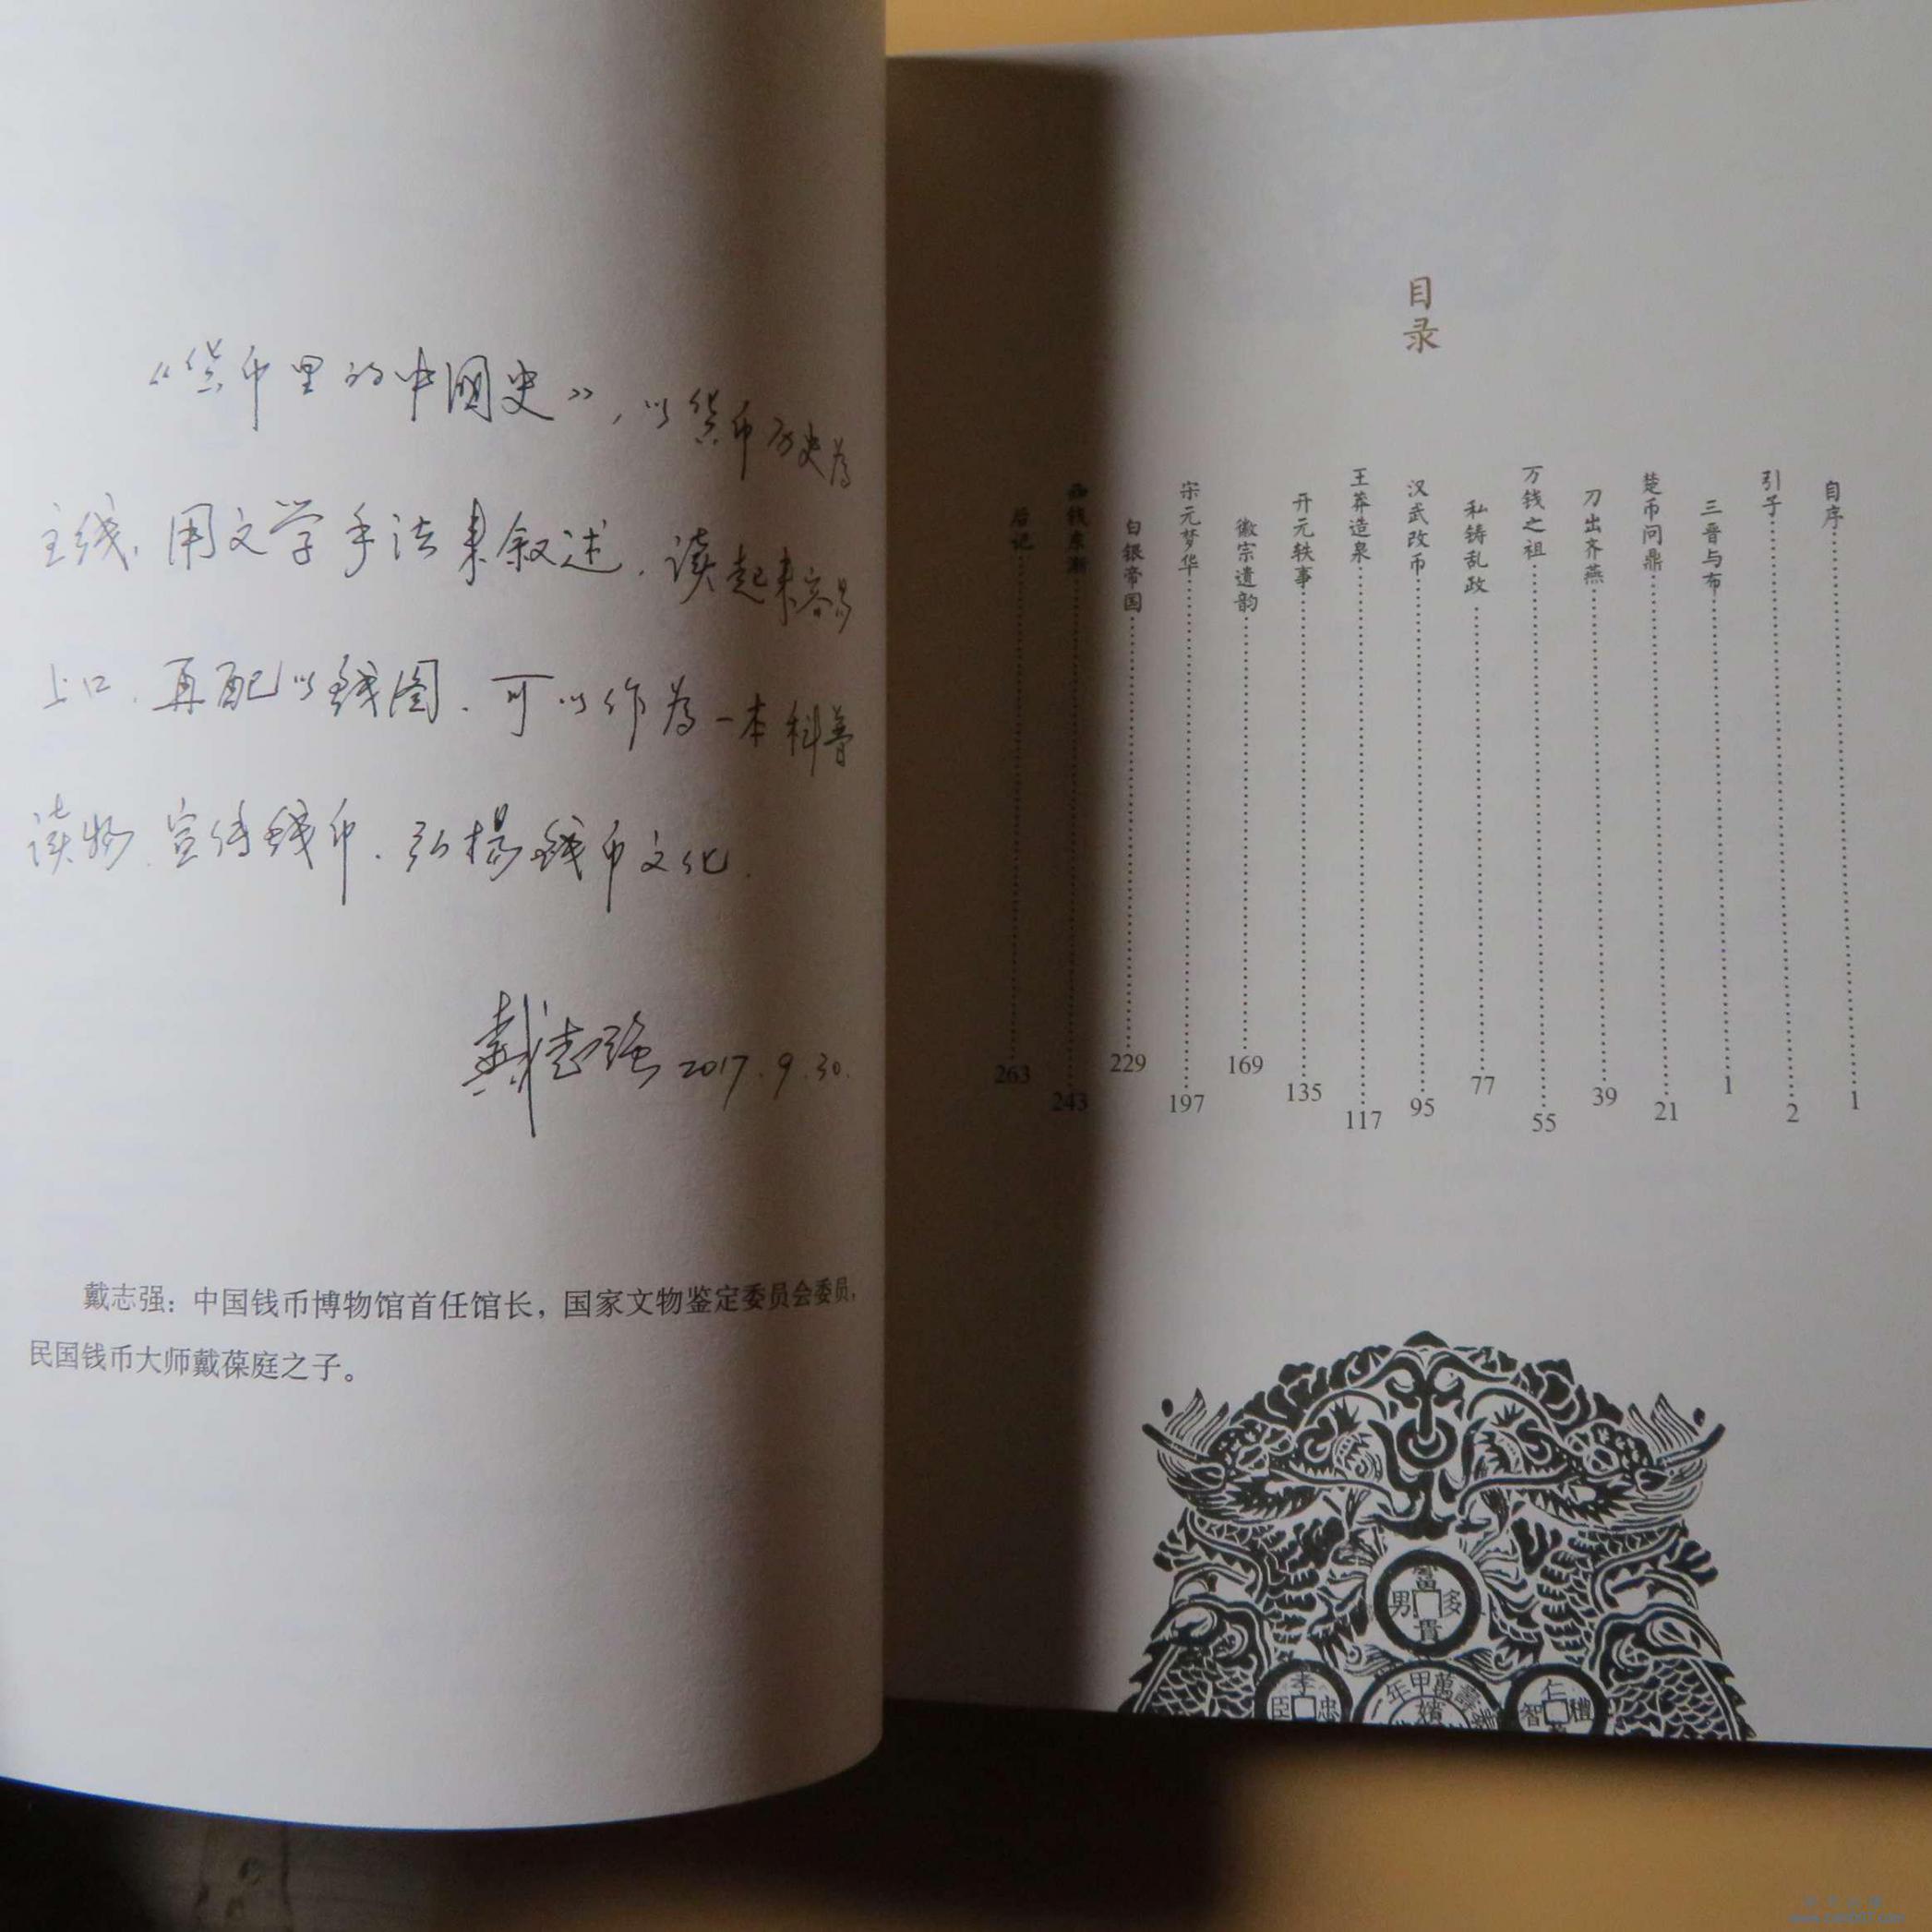 《货币里的中國史》，以货币历史为
主线，用文学手法来叙述，读起来容易
上口，再配以钱图，可以作为一本科普
读物，宣传钱币，弘扬钱币文化。
戴志强 2017.9.30.
戴志强：中国钱币博物馆首任馆长，国家文物鉴定委员会委员，
民国钱币大师戴葆庭之子。
目录
自序 1
引子 2
三晋与布 1
楚币问鼎 21
刀出齐燕 39
万钱之祖 55
私铸乱政 77
汉武改币 95
王莽造泉 117
开元轶事 135
徽宗遗韵 169
宋元梦华 197
白银帝国 229
西钱东渐 243
后记 263
富貴多男
孝忠臣
仁禮智
甲萬壽年